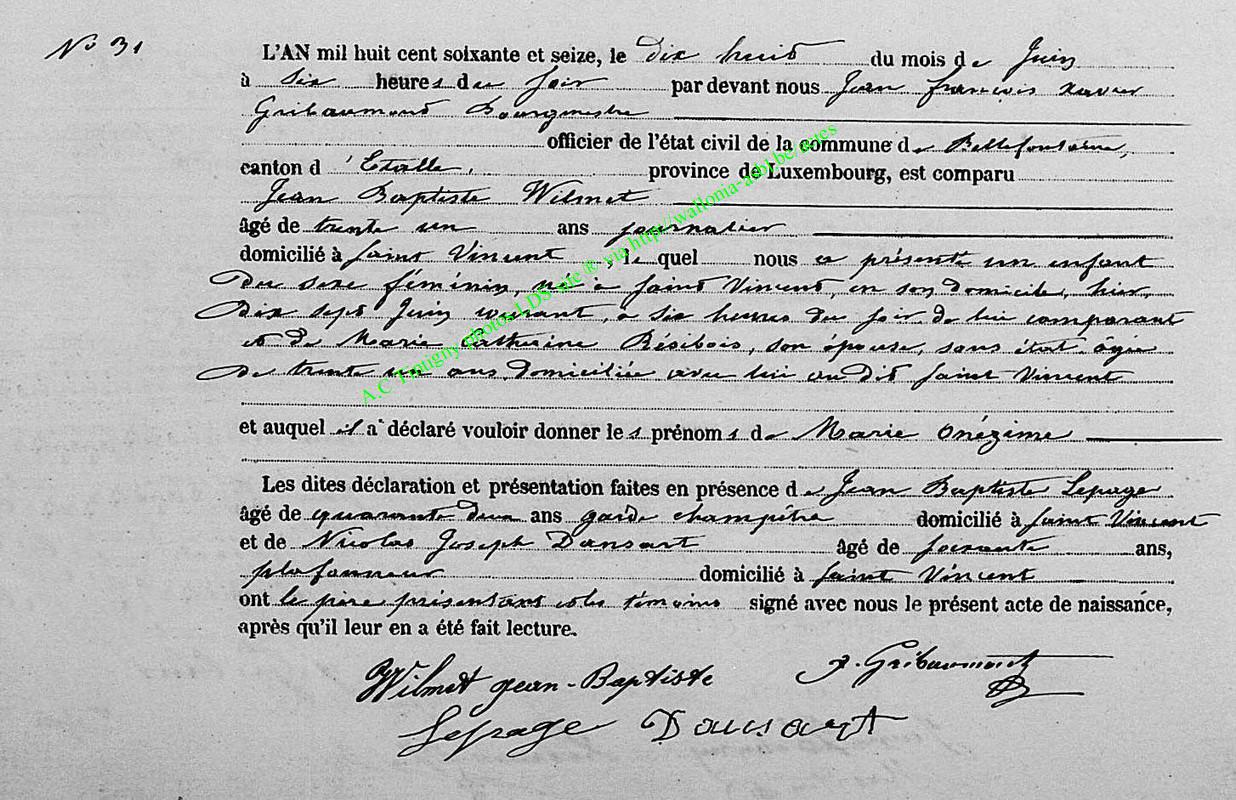 No 31
L'AN mil huit cent soixante et seize, le dix huit du mois de Juin
à six heures du soir par devant nous Jean françois xavier
Gribaumont Bourgmestre
officier de l'état civil de la commune de Bellefontaine,
canton d'Etalle, province de Luxembourg, est comparu
Jean Baptiste Wilmet
âgé de trente un ans journalier
domicilié à Saint Vincent, le quel nous a présenté un enfant
du sexe féminin, né à Saint Vincent, en son domicile, hier,
dix sept Juin courant, à six heures du soir de lui comparant
et de Marie Catherine Résibois, son épouse, sans état, âgée
de trente un ans domiciliée avec lui au dit Saint Vincent
et auquel il a déclaré vouloir donner les prénoms de Marie Onézime
Les dites déclaration et présentation faites en présence de Jean Baptiste Lepage
âgé de quarante deux ans garde champêtre domicilié à Saint Vincent
et de Nicolas Joseph Dansart âgé de soixante ans,
plafonneur domicilié à Saint Vincent
ont le père présentant et les témoins signé avec nous le présent acte de naissance,
après qu'il leur en a été fait lecture.
Wilmet jean-Baptiste Gribaumont
Lepage Dansart
A.C Tintigny photos LDS site ® via http//wallonia-asbl.be/actes